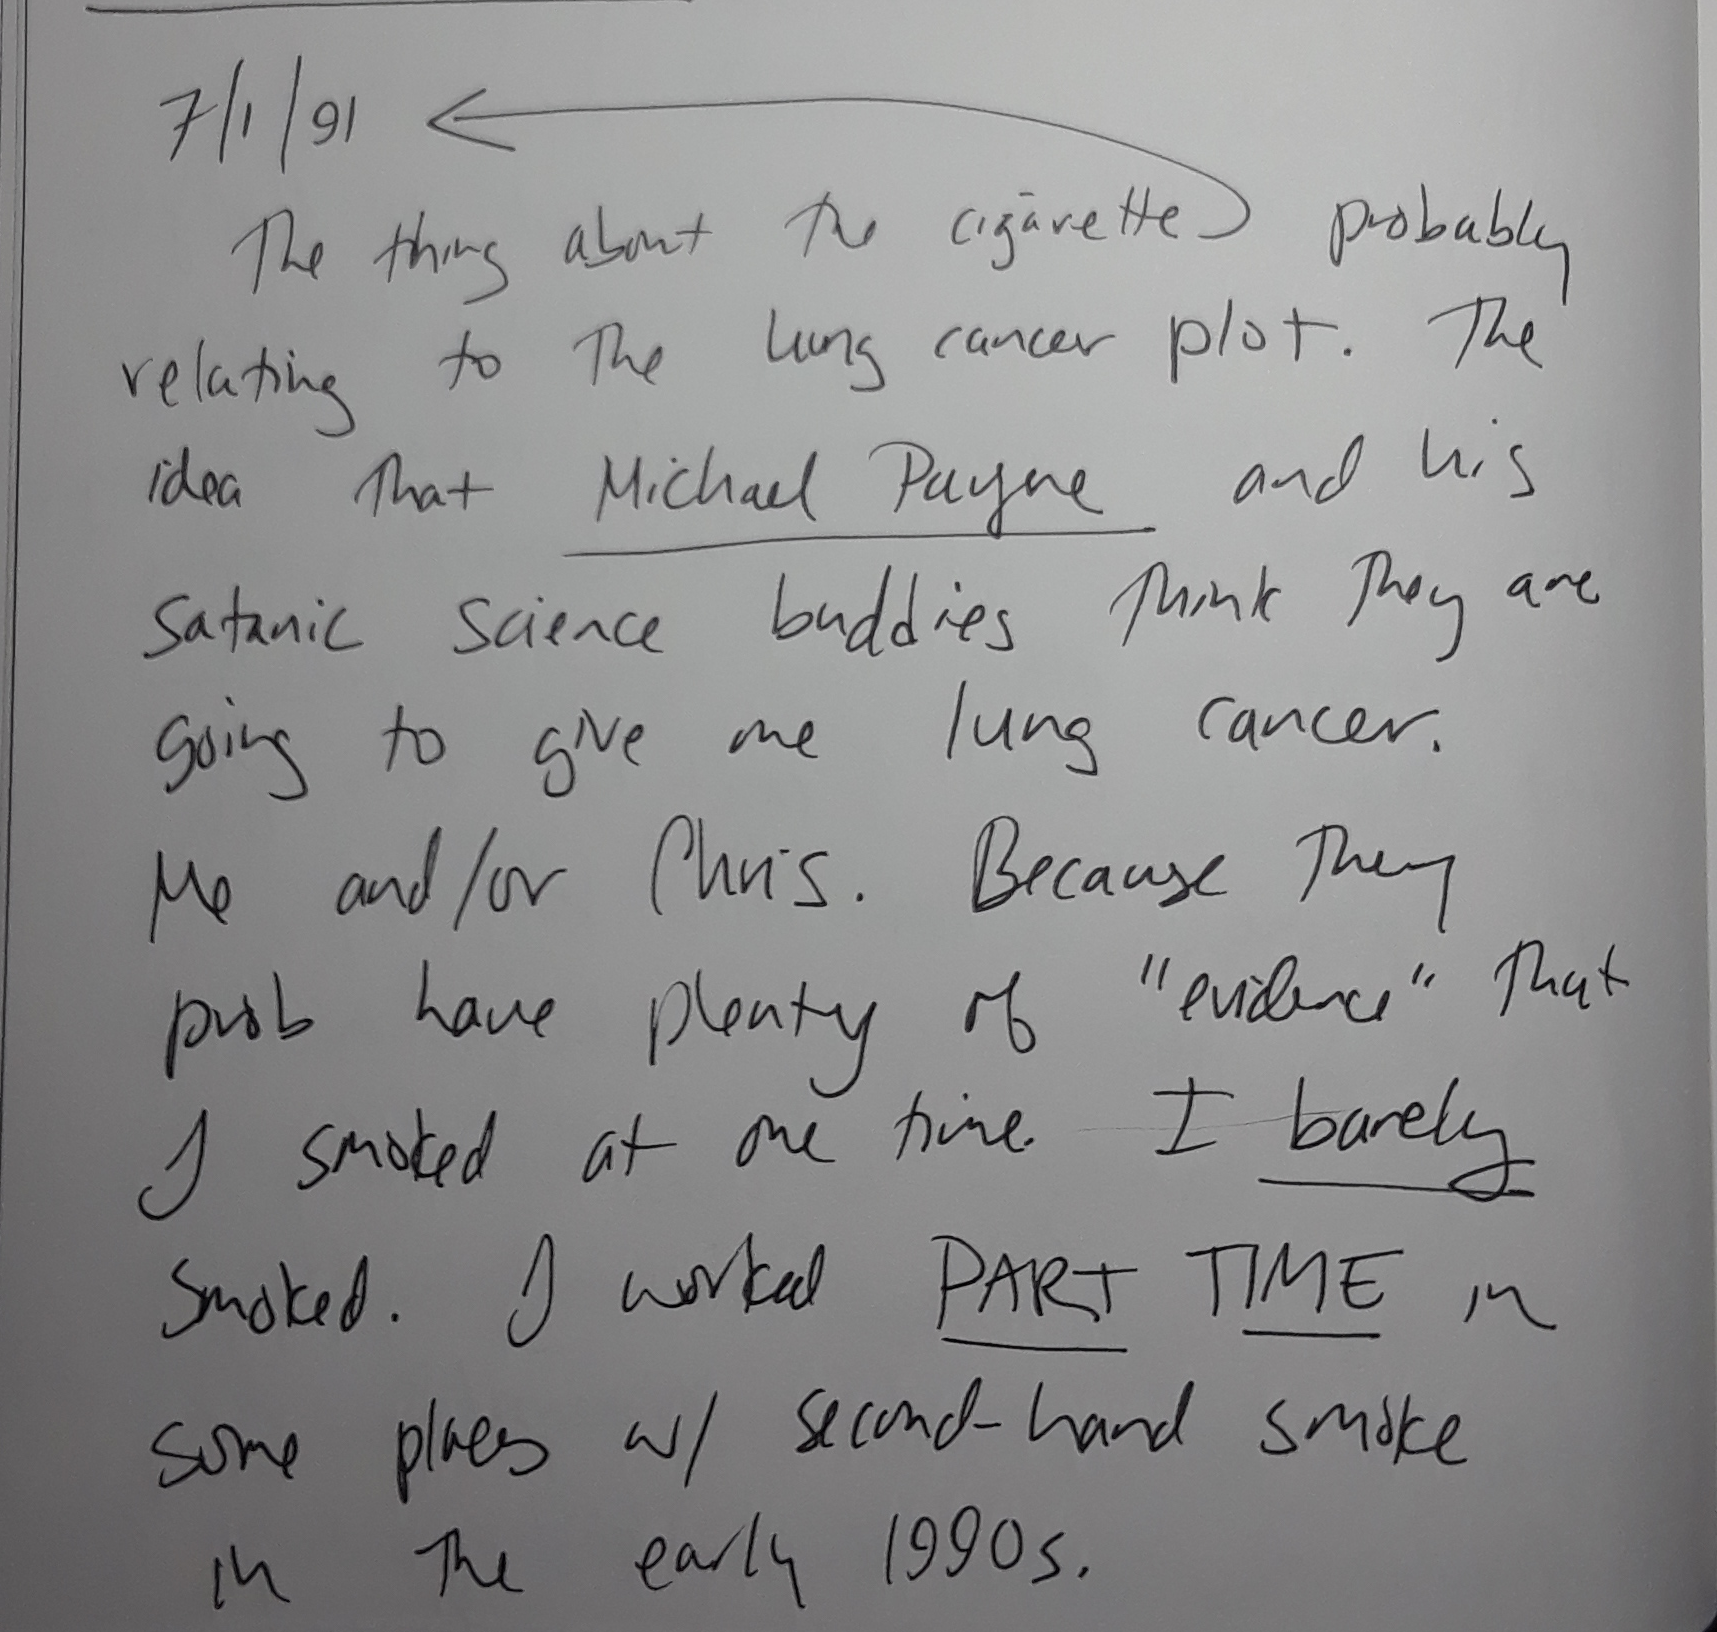 7/1/91
The thing about the cigarette probably
relating to the lung cancer plot. The
idea that Michael Payne and his
Satanic science buddies think they are
going to give me lung cancer.
Me and/or Chris. Because they
prob have plenty of "evidence" that
I smoked at one time. I barely
smoked. I worked PART TIME in
some places w/ second-hand smoke
in the early 1990s.